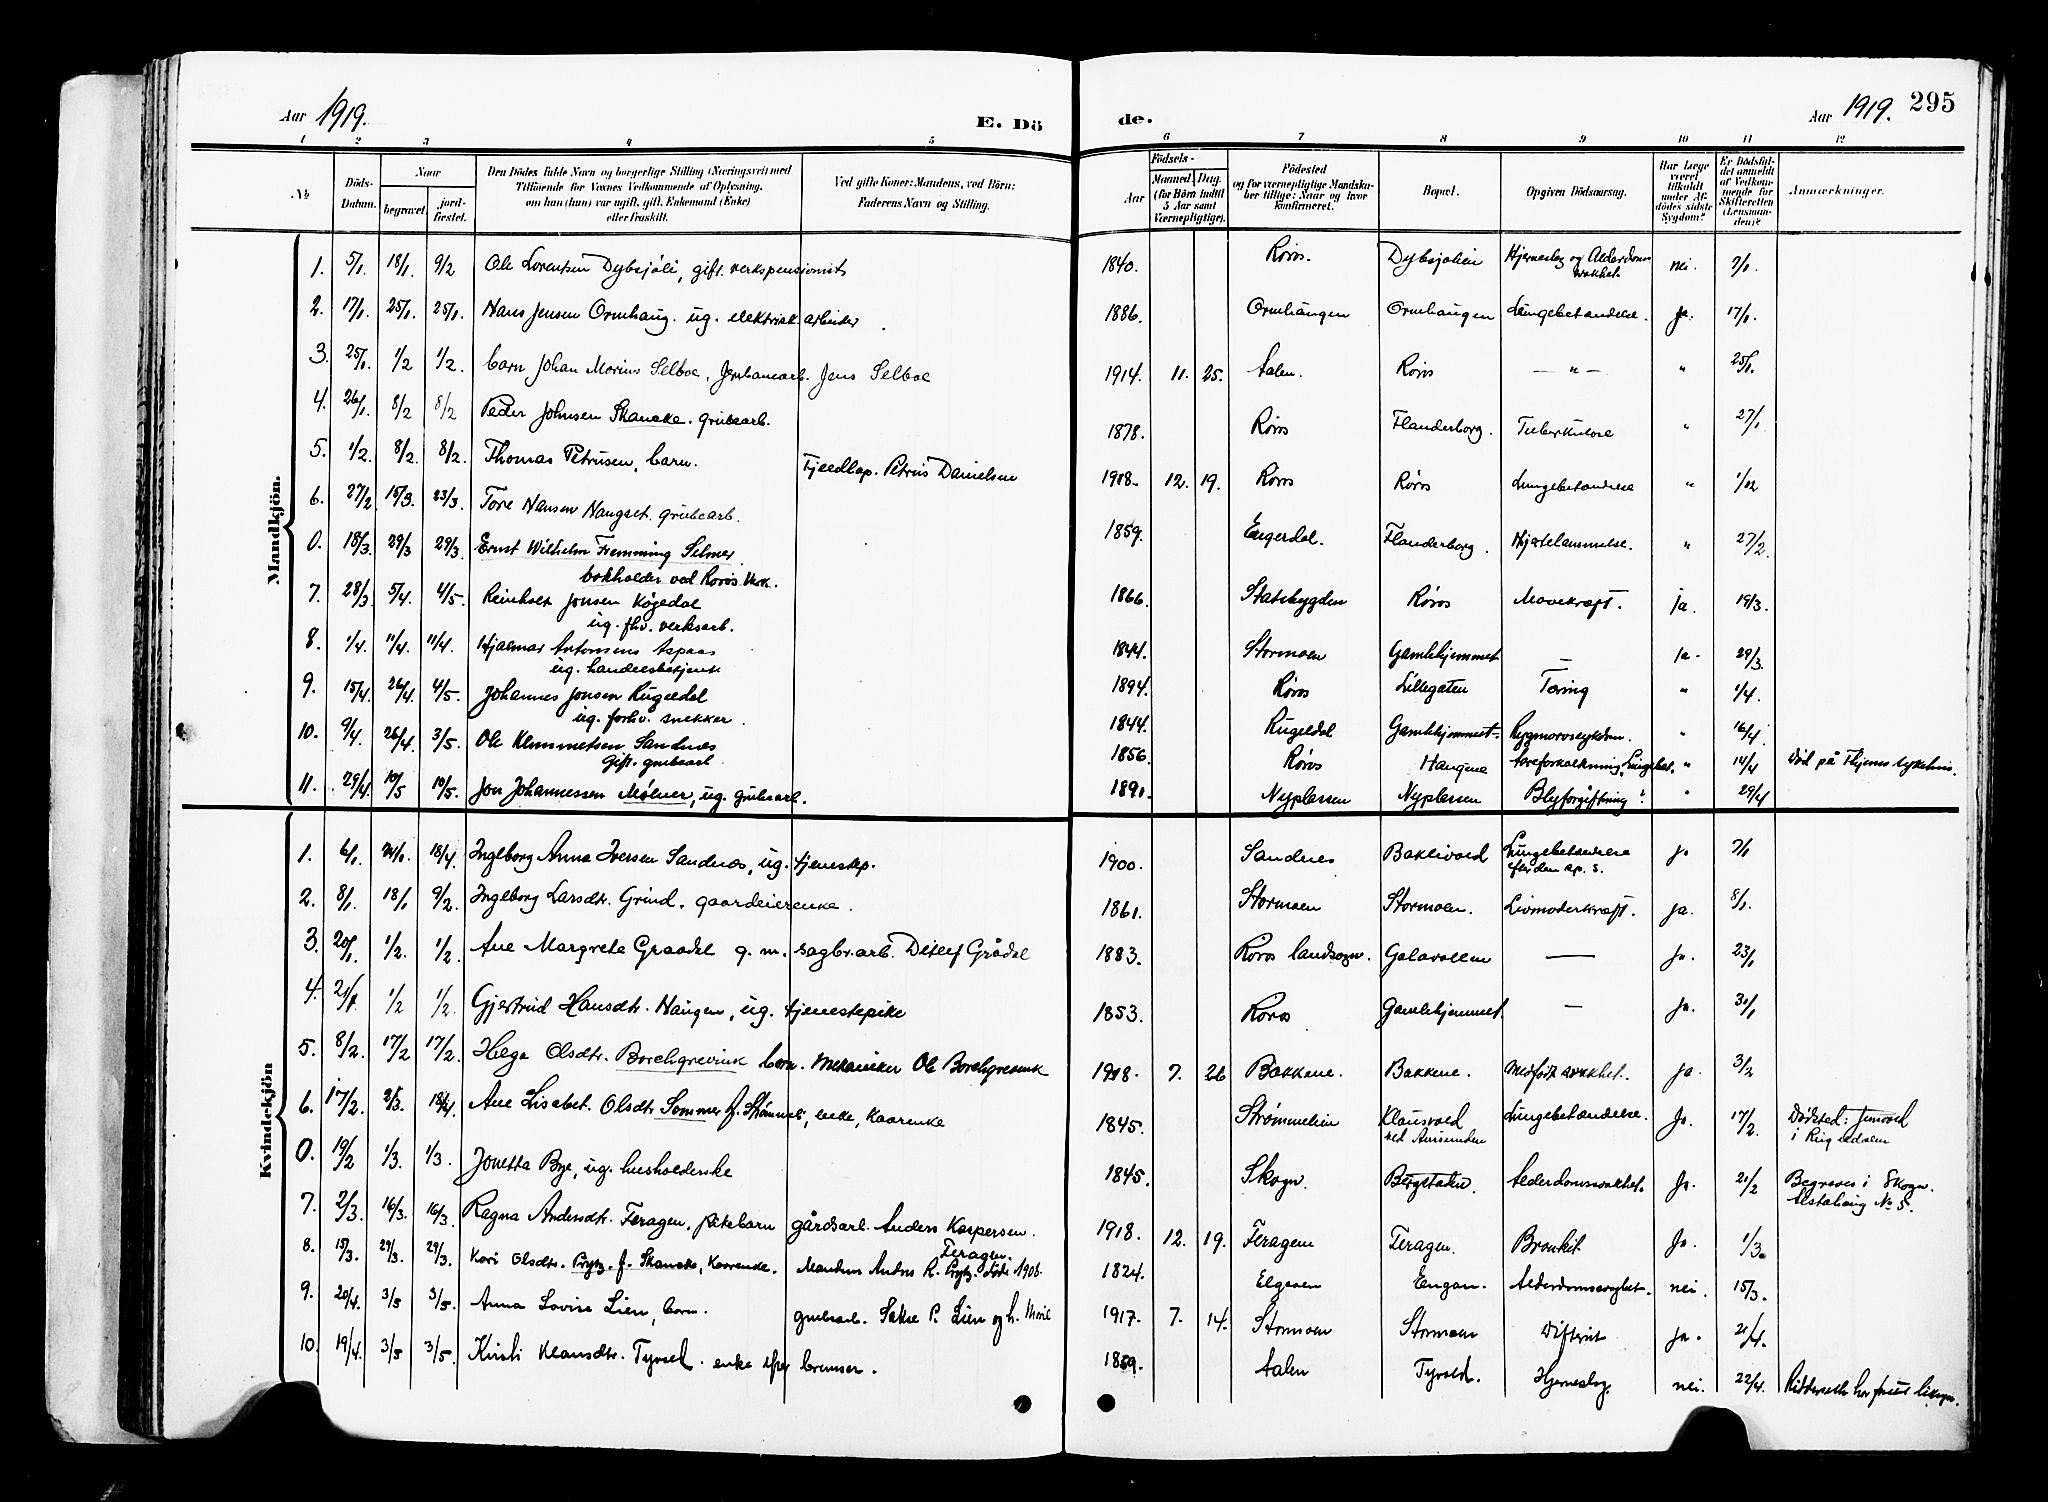 Aar 1919. E. Dö
de. Aar 1919. 295
1 2 3 4 5 6 7 8 9 10 11 12
No. Döds-Datum. Naar begravet. jordfæstet. Den Dödes fulde Navn og borgerlige Stilling (Næringsvei) med Tilföiende for Voxnes Vedkommende af Oplysning, om han (hun) var ugift, gift, Enkemand (Enke) eller fraskilt. Ved gifte Koner: Mandens, ved Börn: Faderens Navn og Stilling.
Födsels- Aar Maaned. Dag. (for Börn indtil 5 Aar samt Værnepligtige). Födested og for værnepligtige Mandskaber tillige: Naar og hvor konfirmeret. Bopæl. Opgiven Dödsaarsag. Har Læge været tilkaldt under Afdödes sidste Sygdom? Er Dödsfaldet anmeldt af Vedkommende for Skifteretten (Lensmanden)? Anmærkninger.
Mandkjön.
1. 5/1 18/1 9/2 Ole Lorentsen Dybsjöli, gift. verkspensionist 1840. Røros. Dybsjølien Hjerneslag og Alderdoms- svakhet. nei. 7/1.
2. 17/1. 25/1. 25/1. Hans Jensen Ormhaug. ug. elektrisk arbeider. 1886. Ormhaugen Ormhaugen Lungebetændelse. Ja. 17/1.
3. 25/1. 1/2 1/2. barn Johan Marius Selboe, Jernbanearb. Jens Selboe 1914. 11. 25. Aalen. Røros — " — " 25/1.
4. 26/1. 8/2 8/2 Peder Johnsen Skancke. grubearb. 1878. Røros Flanderborg. Tuberkulose " 27/1
5. 1/2. 8/2. 8/2. Thomas Petrusen, barn. Fjeldlap. Petrus Danielsen 1918. 12. 19. Røros Røros Lungebetændelse " 1/02
6. 27/2 15/3. 23/3. Tore Hansen Haugset. grubearb. 1859. Engerdal. Flanderborg. Hjertelammelse. " 27/2.
0. 18/3. 29/3 29/3. Ernst Wilhelm Flemming Selmer
bokholder ved Røros Verk. 1866. Statsbygden Røros Mavekræft. ja. 19/3.
7. 28/3. 5/4. 4/5. Jonsen Køgedal
ug. fhv. verksarb. 1844. Stormoen Gamlehjemmet — ja. 29/3.
8. 1/4. 11/4. 11/4. Hjalmar Antonsens Aspaas
ug. handelsbetjent 1894. Røros Lillegaten Tæring " 1/4.
9. 15/4. 26/4 4/5. Johannes Jonsen Rugeldal
ug. forhv. snekker. 1844. Rugeldal Gamlehjemmet. Rygmarvssykdom. " 16/4.
10. 9/4. 26/4 3/5. Ole Klemmetsen Sandnes
Gift. grubearb. 1856. Røros Haugene Aareforkalkning, Lungebet. " 14/4 Død på sykehus.
11. 29/4. 10/5 10/5. Jon Johannessen Mølner, ug. grubearb. 1890. Nyplassen Nyplassen Blyforgiftning? " 29/4
Kvindekjön
1. 6/1. 24/1. 18/4. Ingeborg Anna Iversen Sandnes, ug. tjenestep. 1900. Sandnes Bakkvold Lungebetændelse
efter den sp. s. Ja 7/1
2. 8/1. 18/1 9/2. Ingeborg Larsdtr. Grind. gaardeierenke. 1861. Stormoen Stormoen. Livmoderkræft. Ja. 8/1.
3. 20/1. 1/2. 1/2. Ane Margreta Graadal g. m. sagbr.arb. Ditlef Grådal 1883. Røros landsogn. Galavollen — Ja. 23/1
4. 21/1 1/2 1/2. Gjertrud Hansdtr. Haugen, ug. tjenestepike 1853. Røros Gamlehjemmet. — Ja. 31/1
5. 8/2. 17/2 17/2. Helga Olsdtr. Borchgrevink barn. Mekaniker Ole Borchgrevink 1918. 7. 26 Bakkene. Bakkene. Medfødt svakhet. Ja. 3/2
6. 17/2. 2/3. 18/4. Ane Lisabet Olsdtr Sommer f. Strømmeli, enke, Kaarenke 1845. Strømmelien Klausvold
ved Aursunden Lungebetændelse. Ja. 17/2. Dødsted: Jensvold
i Rugeldalen
0. 19/2 1/3. 1/3. Jonetta Bye, ug. husholderske 1845. Skogn. Bergstaden. Alderdomssvakhet. Ja. 21/2 Begraves i Skogn.
Alstahaug No 5.
7. 2/3. 16/3. 16/3. Ragna Andersdtr. Feragen, pikebarn gårdsarb. Anders Kaspersen.
Feragen. 1918. 12. 19. Feragen Feragen. Bronkit Ja. 1/3.
8. 15/3. 29/3. 29/3. Kari Olsdtr. Prytz. f. Skancke, Kaarenke. Manden Anders R. Prytz. död 1906. 1824. Elgaaen Engan. Alderdomssvaghet. nei. 15/3.
9. 20/4. 3/5 3/5. Anna Lovise Lien, barn. grubearb. P. Lien og h. 1917. 7. 14. Stormoen Stormoen Difterit Ja. 21/4.
10. 19/4. 3/5 3/5. Kirsti Klausdtr. Tyvold. enke efter bremser. 1859. Aalen Tyvold. Hjerneslag. nei. 22/4.